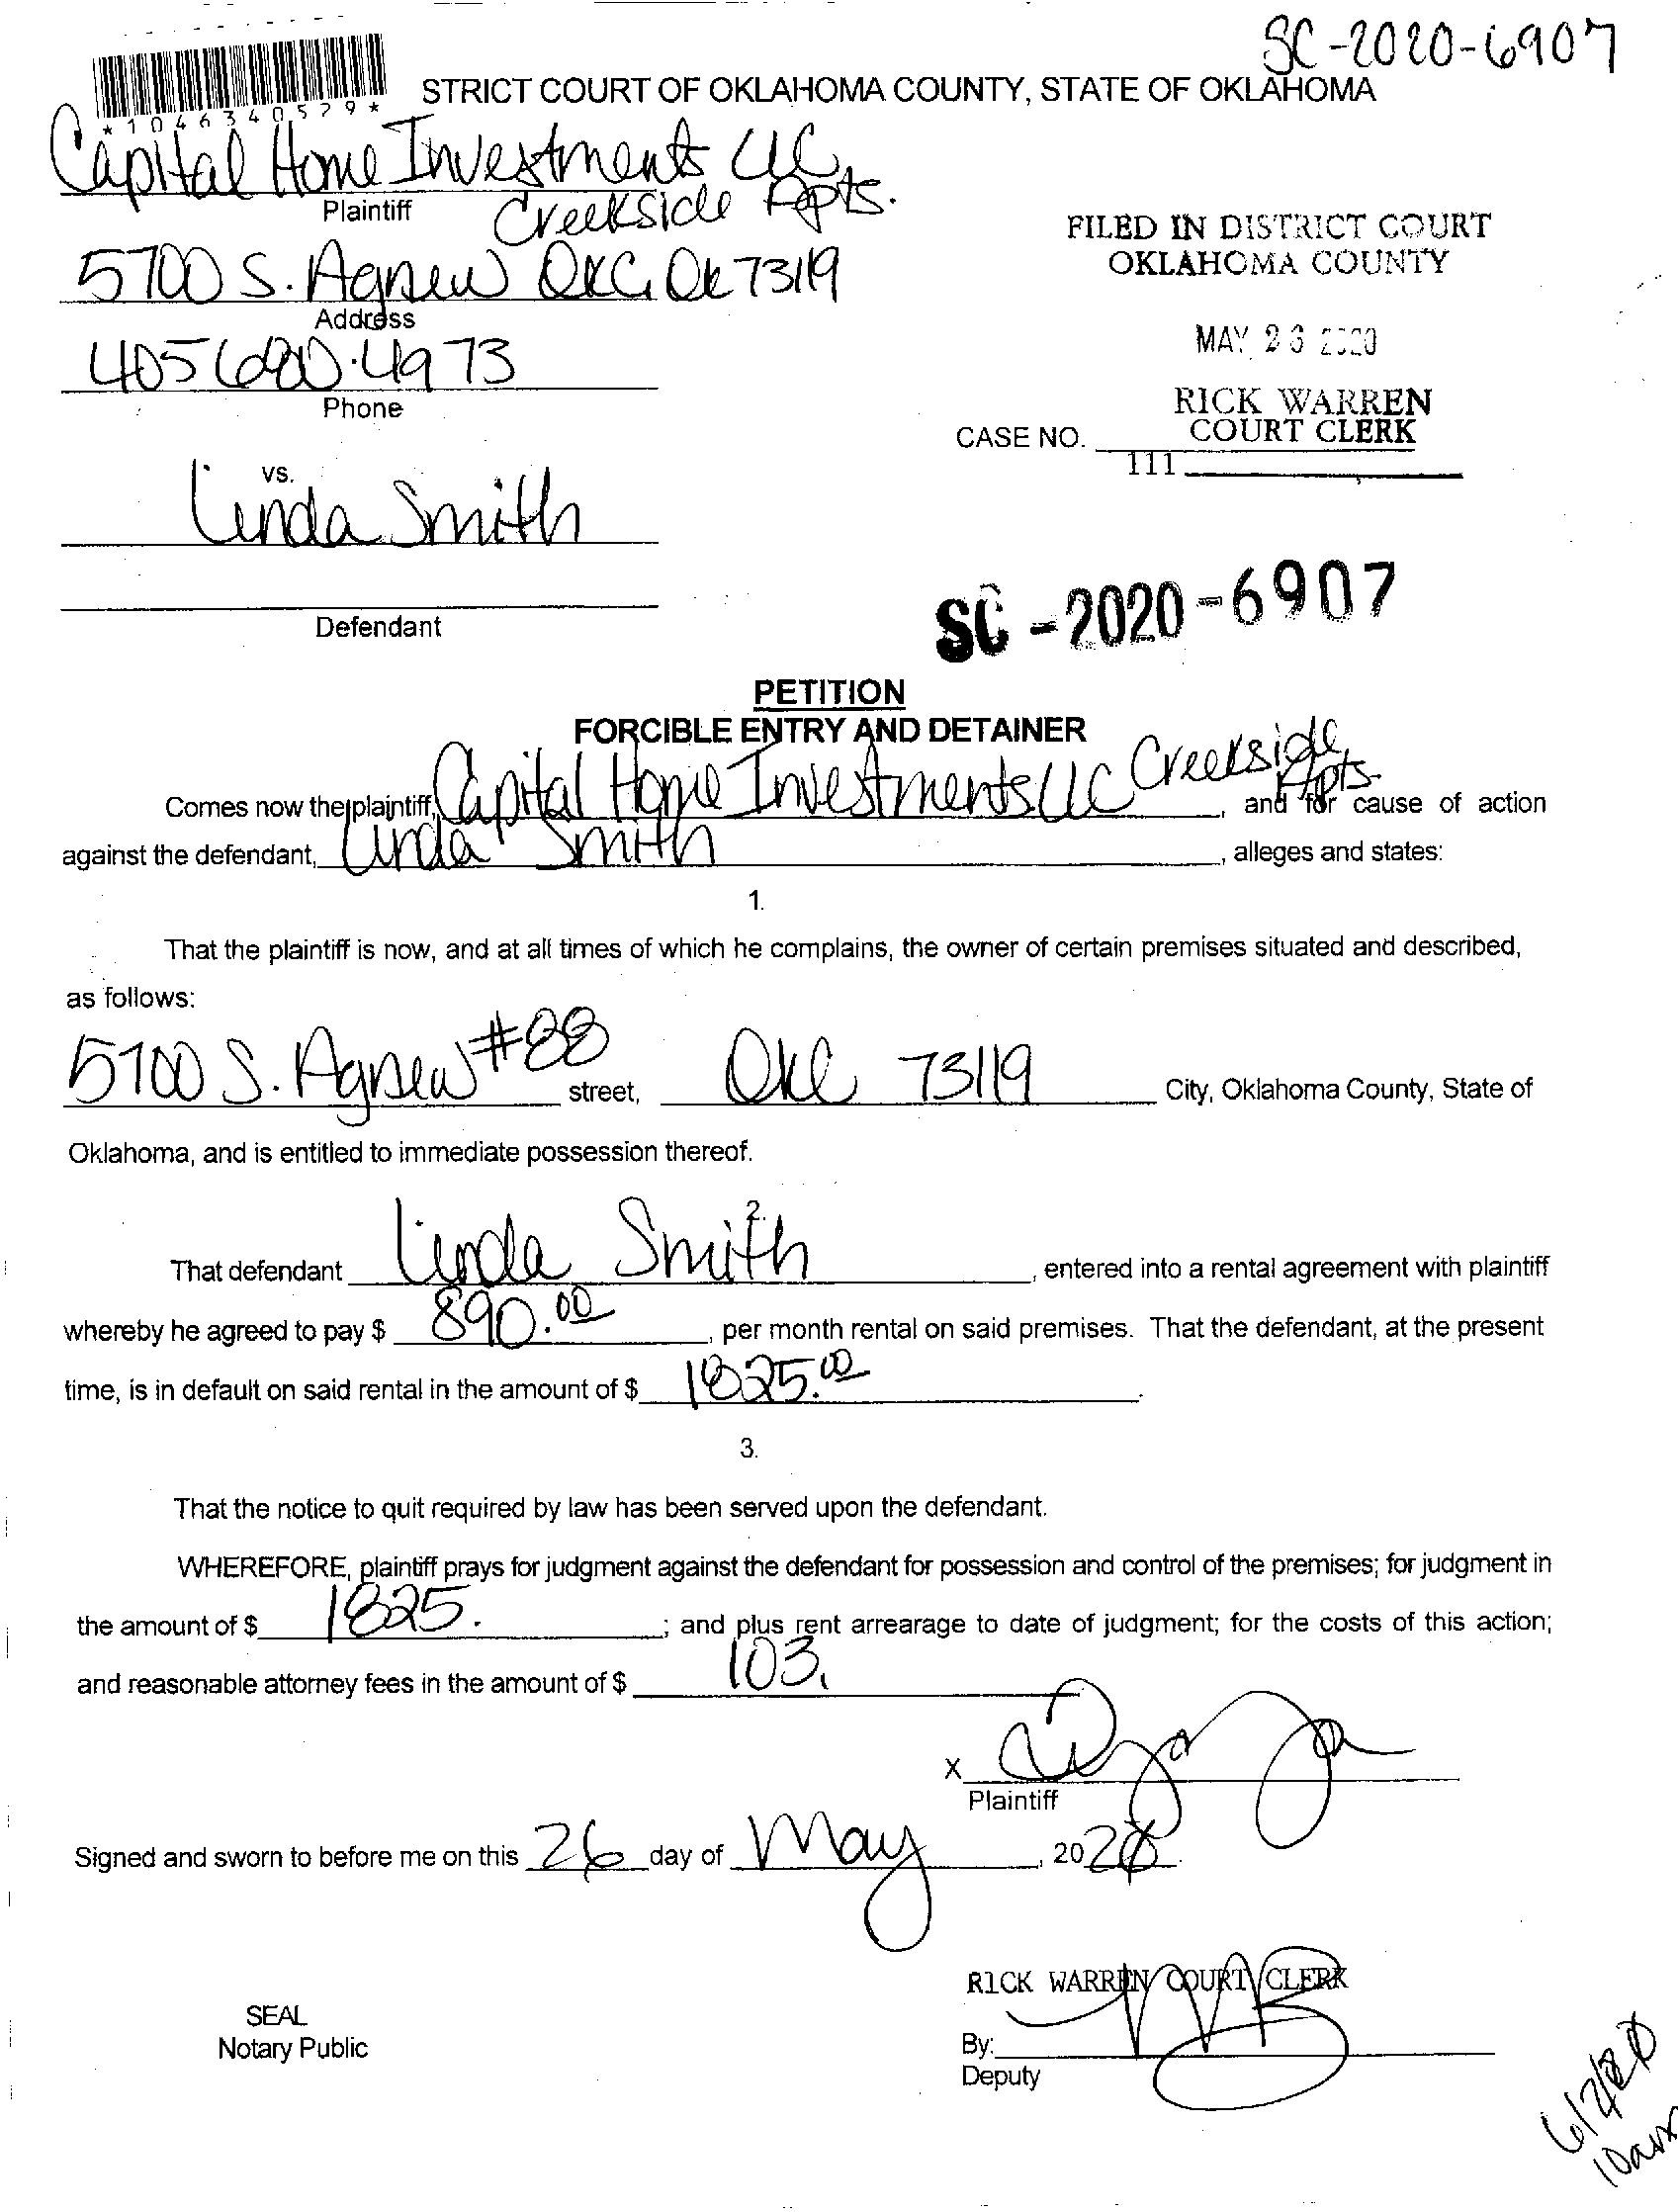 SC-2020-6907
*1046340579*
STRICT COURT OF OKLAHOMA COUNTY, STATE OF OKLAHOMA
Capital Home Investments LLC
Plaintiff
Creekside Apts.
5700 S. Agnew OKC, Ok 73119
Address
FILED IN DISTRICT COURT
OKLAHOMA COUNTY
MAY 26 2020
405 680.4973
Phone
RICK WARREN
COURT CLERK
CASE NO.
111
vs.
Linda Smith
Defendant
SC-2020-6907
PETITION
FORCIBLE ENTRY AND DETAINER
Comes now the plaintiff, Capital Home Investments LLC Creekside Apts., and for cause of action
against the defendant, Linda Smith, alleges and states:
1.
That the plaintiff is now, and at all times of which he complains, the owner of certain premises situated and described,
as follows:
5700 S. Agnew #88 street, OKC 73119 City, Oklahoma County, State of
Oklahoma, and is entitled to immediate possession thereof.
2.
That defendant Linda Smith, entered into a rental agreement with plaintiff
whereby he agreed to pay $ 890.00, per month rental on said premises. That the defendant, at the present
time, is in default on said rental in the amount of $ 1825.00.
3.
That the notice to quit required by law has been served upon the defendant.
WHEREFORE, plaintiff prays for judgment against the defendant for possession and control of the premises; for judgment in
the amount of $ 1825. ; and plus rent arrearage to date of judgment; for the costs of this action;
and reasonable attorney fees in the amount of $ 103.
X
Plaintiff
Signed and sworn to before me on this 26 day of May, 2020.
RICK WARREN COURT CLERK
SEAL
Notary Public
By:
Deputy
10am